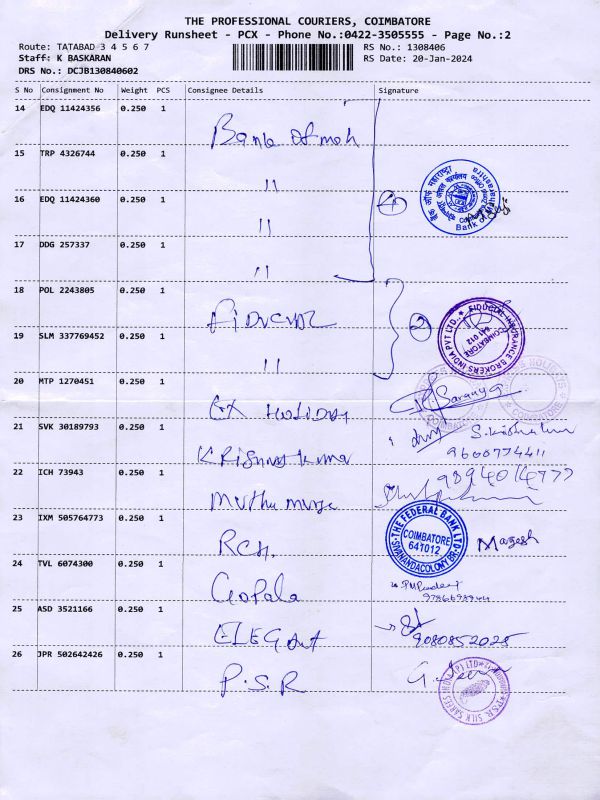 THE PROFESSIONAL COURIERS, COIMBATORE
Delivery Runsheet - PCX - Phone No.:0422-3505555 - Page No.:2
Route: TATABAD 3 4 5 6 7
RS No.: 1308406
Staff: K BASKARAN
RS Date: 20-Jan-2024
DRS No.: DCJB130840602
S No Consignment No Weight PCS Consignee Details Signature
14 EDQ 11424356 0.250 1 Bank of mah
15 TRP 4326744 0.250 1 "
16 EDQ 11424360 0.250 1 "
4
बैंक ऑफ महाराष्ट्र
Bank of Maharashtra
17 DDG 257337 0.250 1 "
18 POL 2243805 0.250 1
2
FIDUCIAL INSURANCE BROKERS INDIA PVT LTD.,
COIMBATORE
641 012
19 SLM 337769452 0.250 1 "
20 MTP 1270451 0.250 1 Ex Holiday Saranya
21 SVK 30189793 0.250 1 Krishna Kumar
9600774411
22 ICH 73943 0.250 1 Muthu
23 IXM 505764773 0.250 1 RCH.
THE FEDERAL BANK LTD
COIMBATORE
641012
SIVANANDACOLONY BR.
Magesh
24 TVL 6074300 0.250 1 Gopala
25 ASD 3521166 0.250 1 ELEGANT 9080852025
26 JPR 502642426 0.250 1 P.S.R
P.S.R. SILK SAREES INDIA (P) LTD